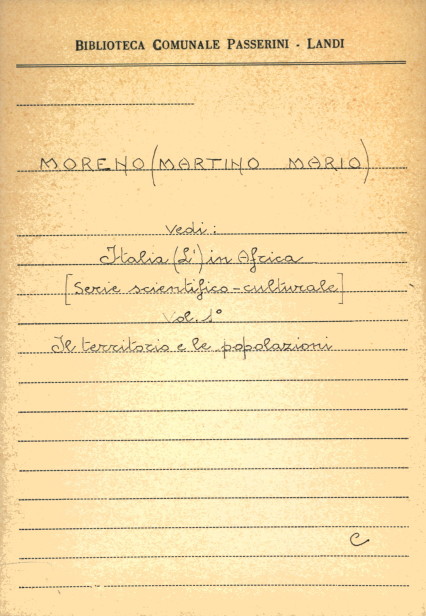 BIBLIOTECA COMUNALE PASSERINI - LANDI
MORENO (MARTINO MARIO)
vedi:
Italia (L') in Africa
[Serie scientifico-culturale]
Vol. 1°
Il territorio e le popolazioni
C